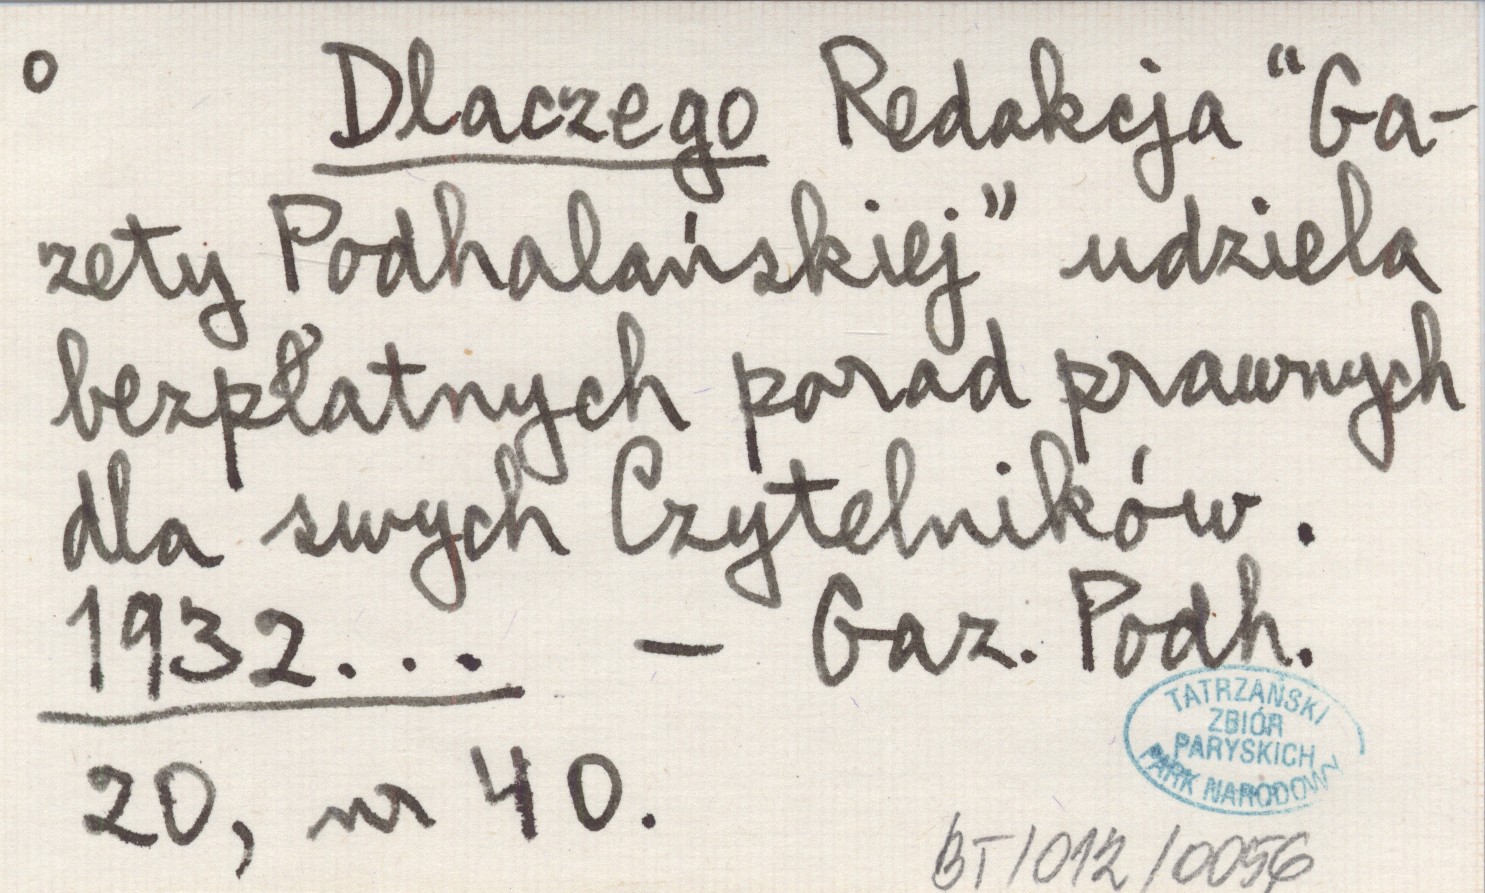 o Dlaczego Redakcja “Ga-
zety Podhalańskiej” udziela
bezpłatnych porad prawnych
dla swych Czytelników.
1932... – Gaz. Podh.
20, nr 40.
TATRZAŃSKI
ZBIÓR
PARYSKICH
PARK NARODOWY
BT/012/0056